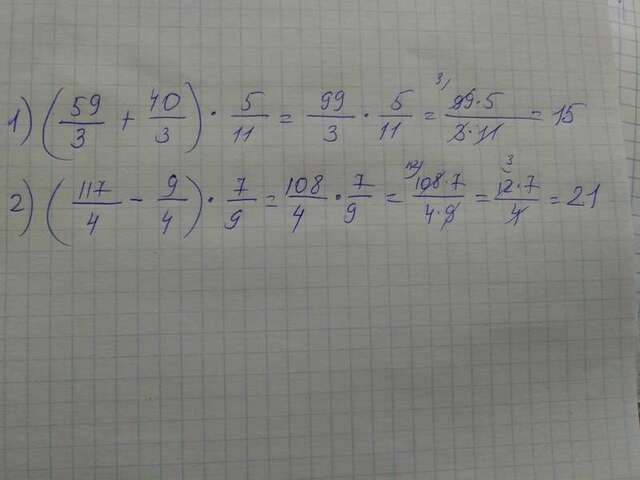 1) (59/3 + 40/3) · 5/11 = 99/3 · 5/11 = 99·5/3·11 = 15
2) (117/4 − 9/4) · 7/9 = 108/4 · 7/9 = 108·7/4·9 = 12·7/4 = 21